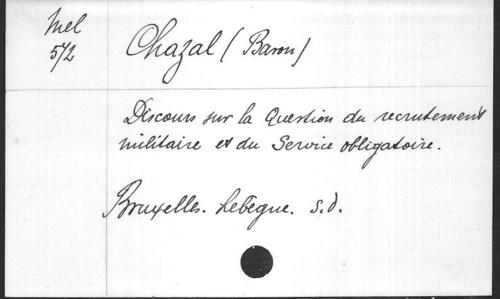 Mel
572
Chazal (Baron)
Discours sur la Question du recrutement
militaire et du Service obligatoire.
Bruxelles. Lebègue. S.d.